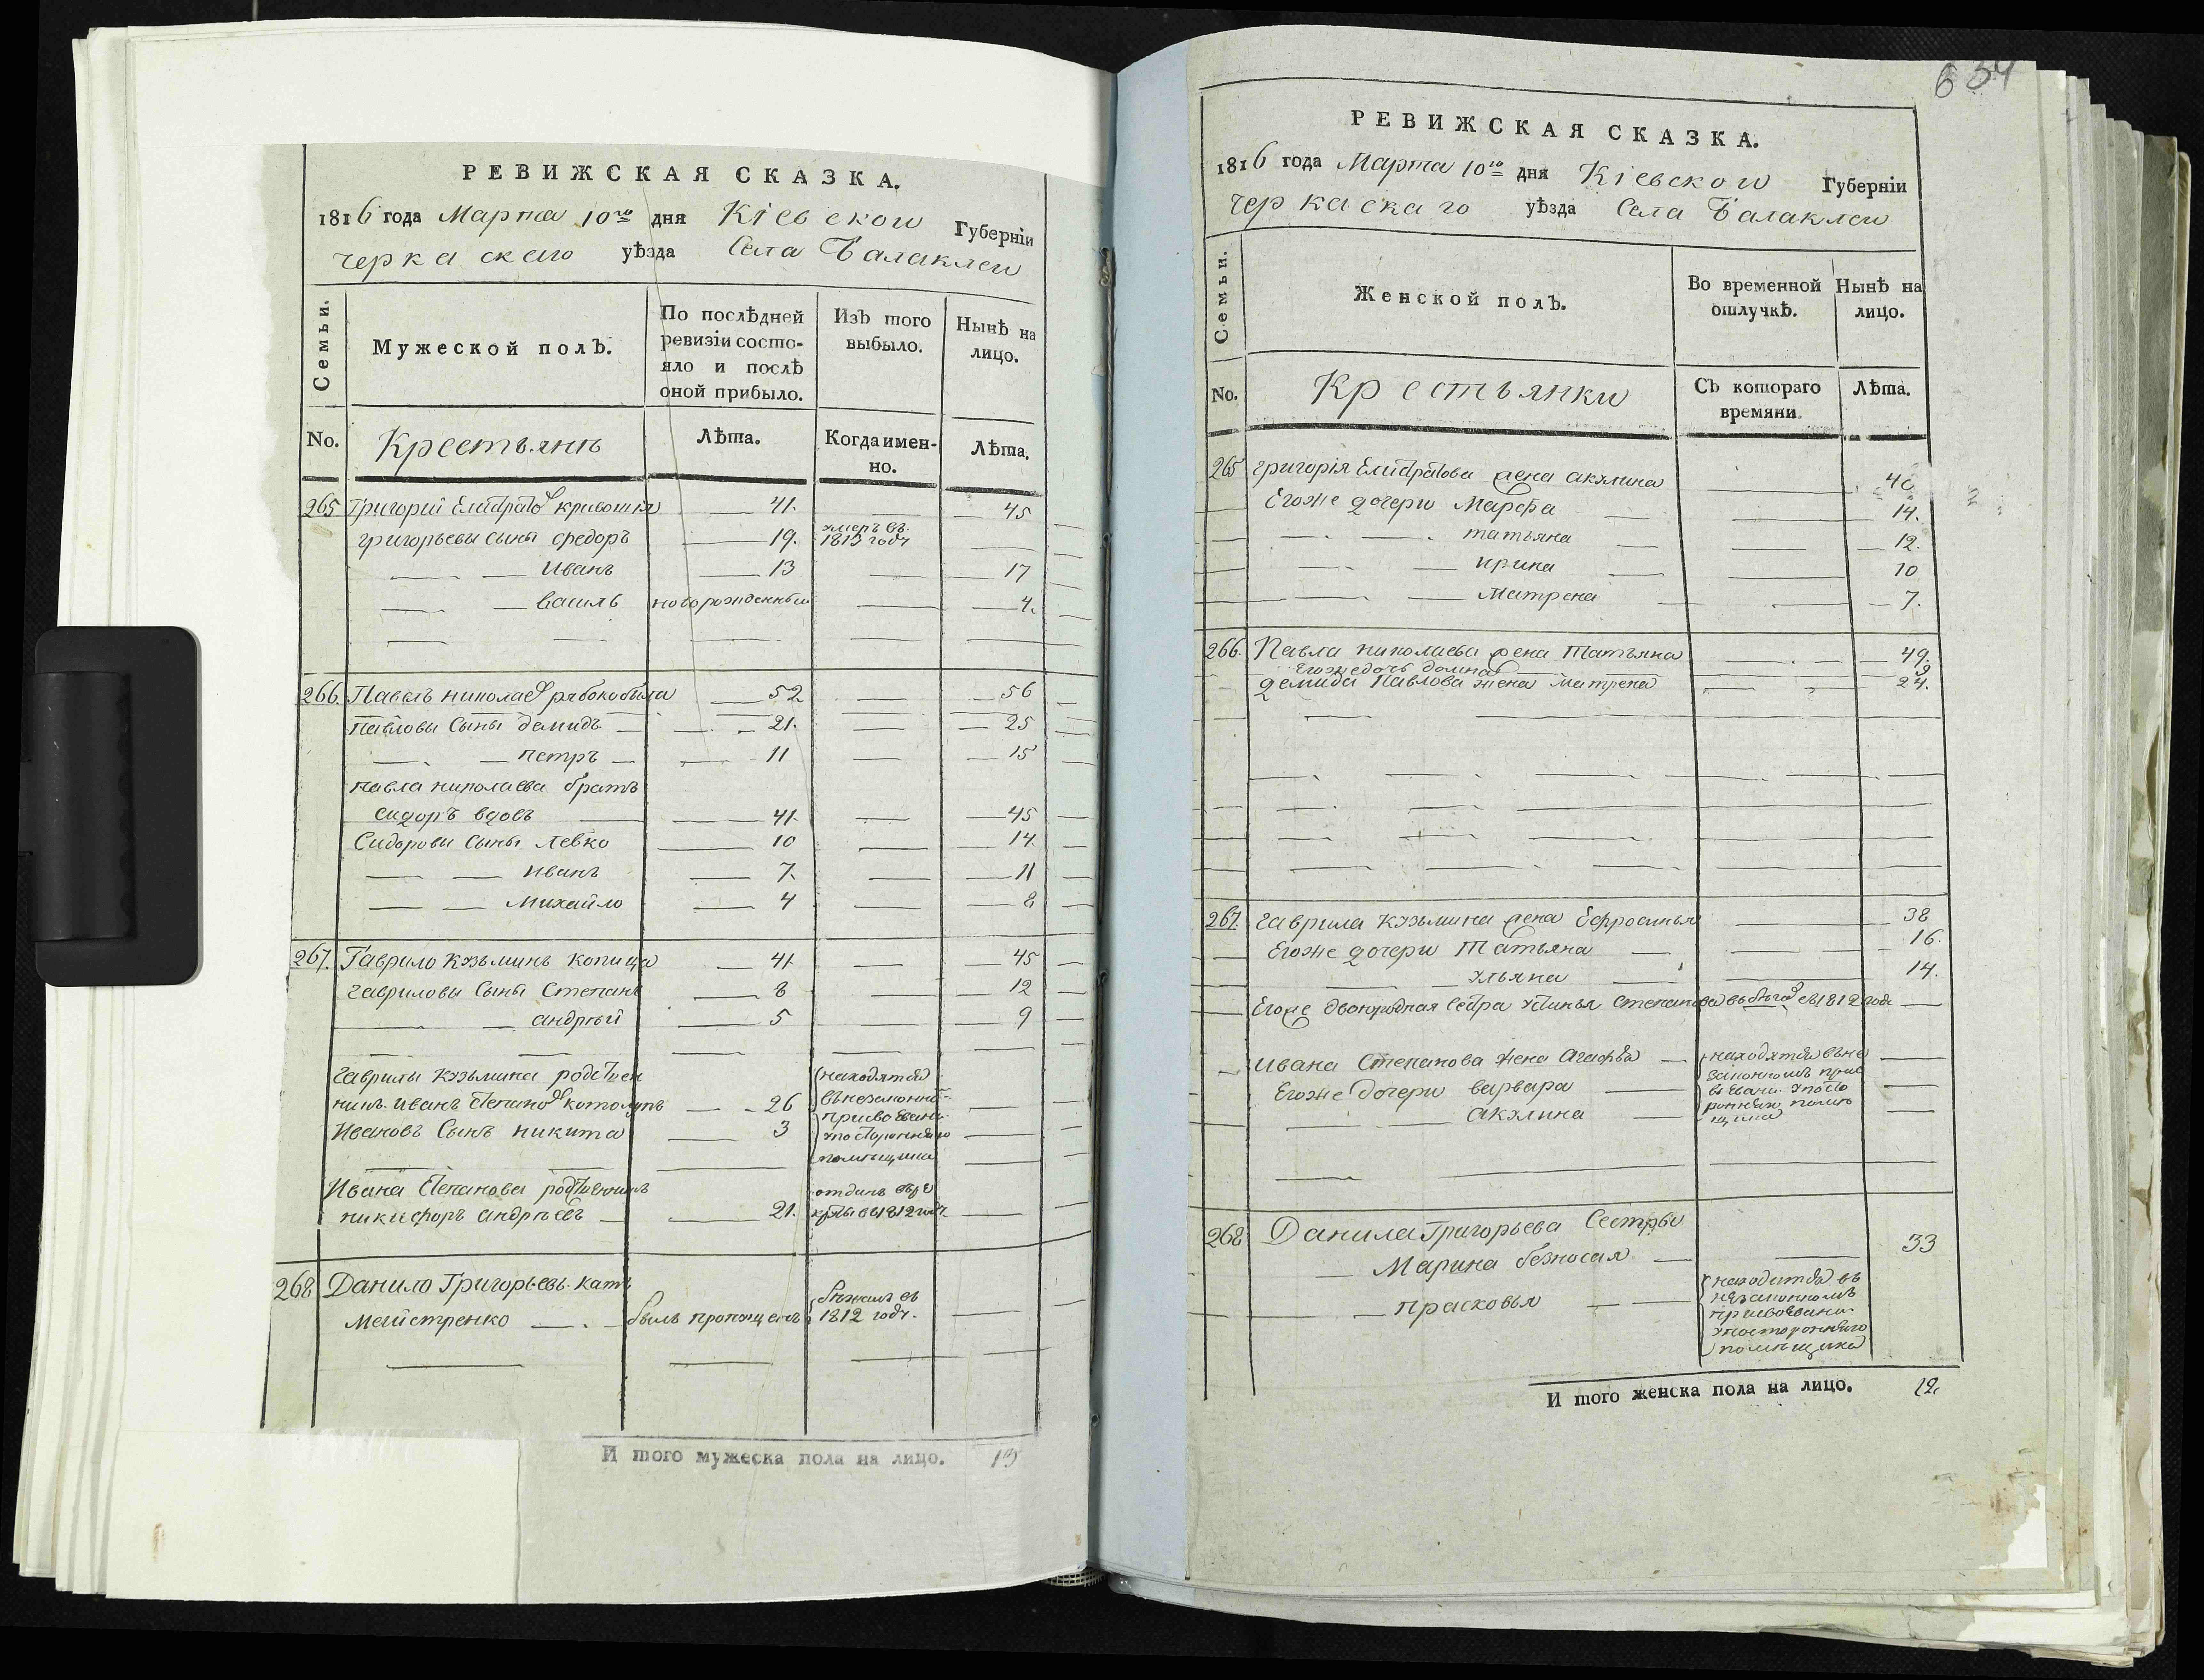 РЕВИЖСКАЯ СКАЗКА.
1816 года Марта 10го дня Кіевской Губерніи
черкаскаго уѣзда Села Балаклеи
Семьи.
Мужеской полъ.
По послѣдней ревизіи состояло и послѣ оной прибыло.
Изъ того выбыло.
Нынѣ на лицо.
No. Крестьянѣ Лѣта. Когда именно. Лѣта.
265 Григорий Елистратов кривошия 41. 45
григорьевы сыны федоръ 19. умеръ въ 1813 году
Иванъ 13 17
василь новорожденный 4.
266. Павелъ николаев рябокобыла 52 56
Павловы Сыны демидъ 21. 25
петръ 11 15
павла николаева братъ
сидоръ вдовъ 41. 45
Сидоровы Сыны левко 10 14
иванъ 7. 11
михайло 4 8
267. Гаврило кузьминъ копица 41. 45
гавриловы Сыны Степанъ 8 12
андрѣй 5 9
гаврилы кузьмина родствен
никъ иванъ степанов 26 находятся
въ незаконном присвоении
у постороннего помѣщика
Ивановъ Сынъ никита 3
Ивана Степанова родственникъ
никифоръ андрѣевъ 21. отданъ в рекруты в 1812 году
268 Данило Григорьевъ катъ
мейстренко былъ пропущенъ бѣжалъ въ 1812 году.
И того мужеска пола на лицо. 13
654
РЕВИЖСКАЯ СКАЗКА.
1816 года Марта 10го дня Кіевской Губерніи
черкаскаго уѣзда Села Балаклеи
Семьи.
Женской полъ.
Во временной отлучкѣ.
Нынѣ на лицо.
No. Крестьянки Съ котораго времяни. Лѣта.
265 григорія Елистратова жена акулина 40
Егоже дочери Марфа 14.
татьяна 12.
ирина 10
Матрена 7.
266. Павла николаева жена Татьяна 49.
Егоже дочь домна 9
демида Павлова жена матрена 24.
267. гаврила кузьмина жена Ефросинья 38
Егоже дочери Татьяна 16.
ульяна 14.
Егоже двоюродная сестра устинья степанова въ бѣгах съ 1812 года
ивана Степанова жена Агафья находятся в не
законном прис
воении у посто
роннего помѣ
щика
Егоже дочери варвара
акулина
268 Данила Григорьева Сестры
Марина безносая 33
прасковья находится въ
незаконномъ
присвоении
у постороннего
помѣщика
И того женска пола на лицо. 12.